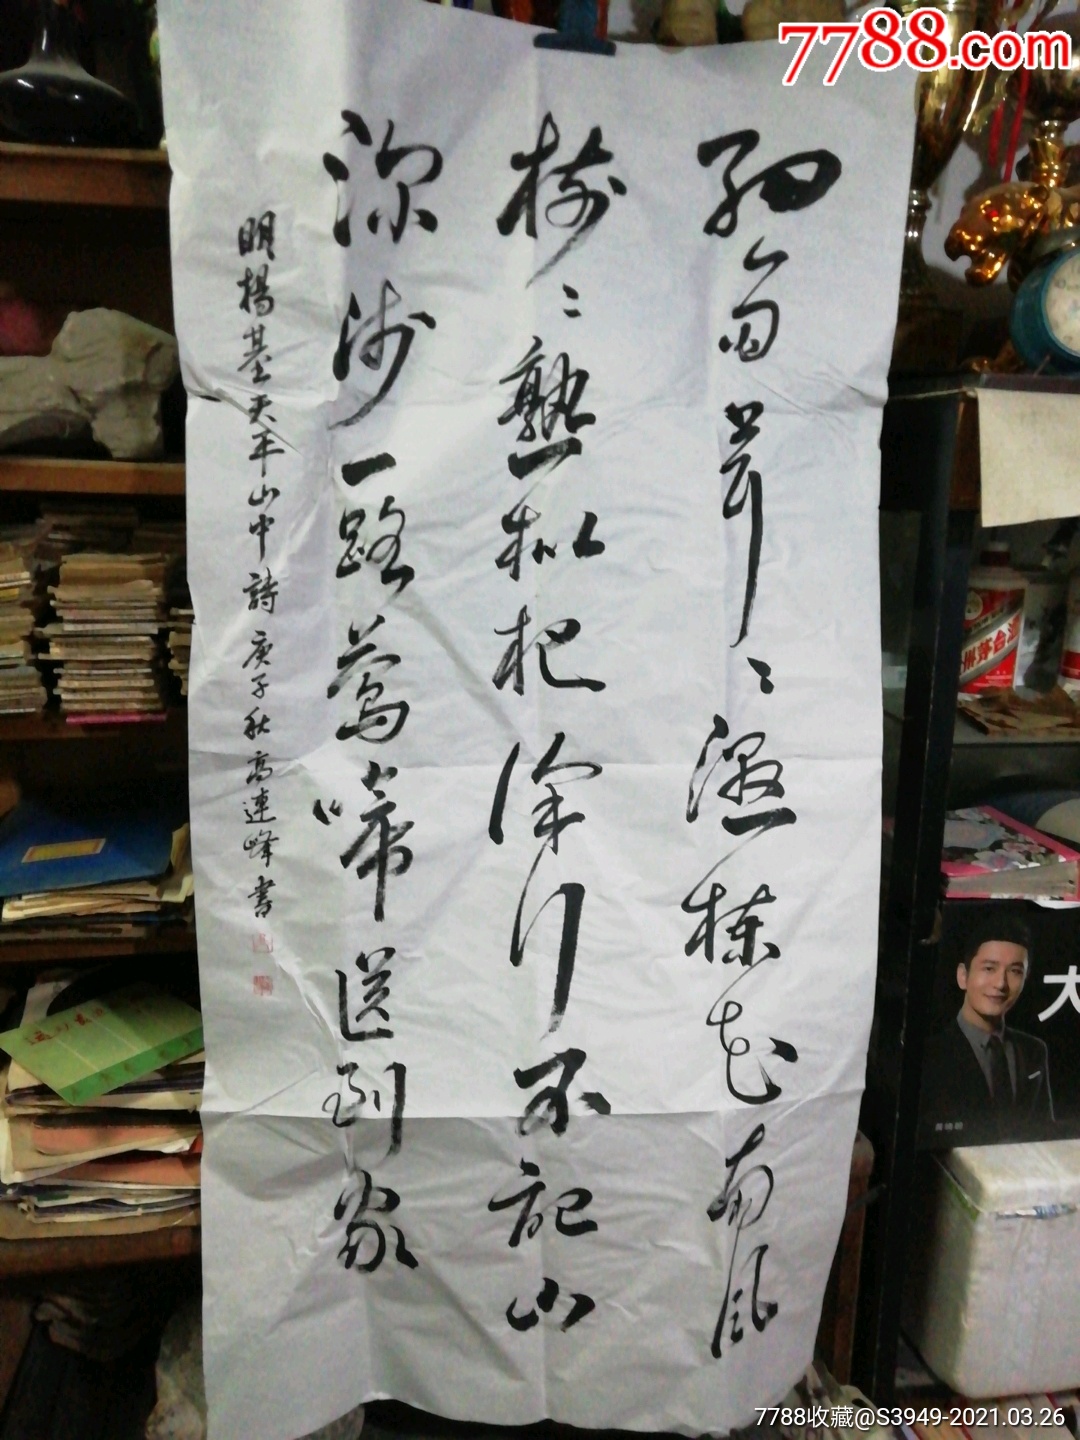 7788.com
細雨茸〻濕楝花南風
樹〻熟枇杷徐行不記山
深淺一路鶯啼送到家
明楊基天平山中詩庚子秋高連峰書
大
7788收藏@S3949-2021.03.26